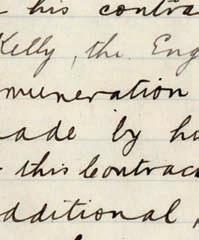 his contra
Kelly, the Eng
muneration
ade by h
this Contrac
dditional